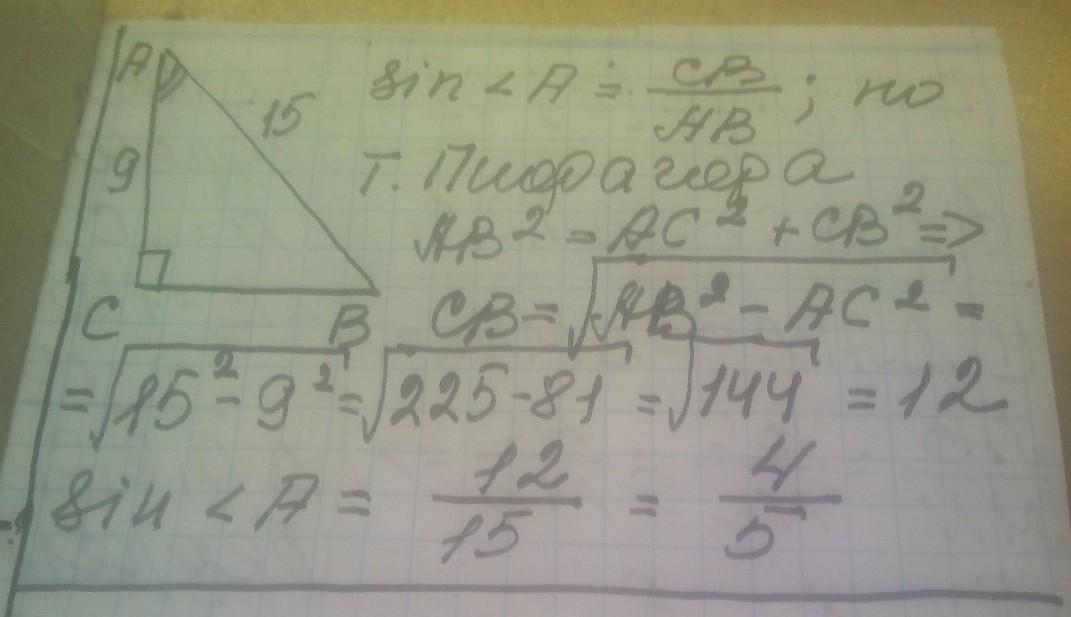 A
15
9
C
B
sin < A = CB/AB ; по
Т. Пифагора
AB² = AC² + CB² =>
CB = √AB² - AC² =
= √15² - 9² = √225 - 81 = √144 = 12
sin < A = 12/15 = 4/5